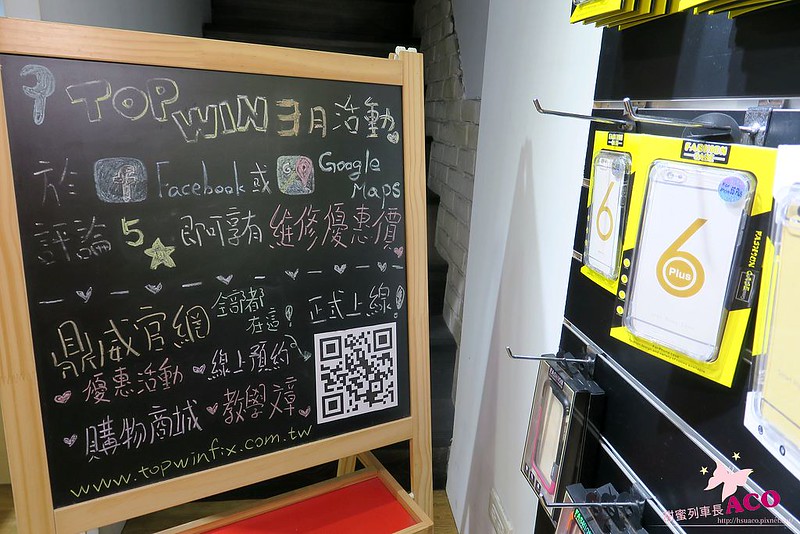 TOP WIN 3月活動
於 Facebook 或 Google Maps
評論 5 即可享有 維修優惠價
鼎威官網 全部都在這! 正式上線!
優惠活動 線上預約
購物商城 教學文章
www.topwinfix.com.tw
FASHION CASE
6
FASHION CASE
6 Plus
FASHION CASE
甜蜜列車長ACO
http://hsuaco.pixnet.net